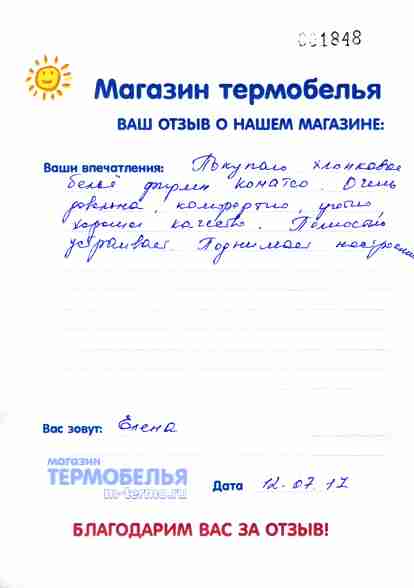 001848
Магазин термобелья
ВАШ ОТЗЫВ О НАШЕМ МАГАЗИНЕ:
Ваши впечатления: Покупаю хлопковое
бельё фирмы Коматсо. Очень
довольна, комфортно,
хорошее качество. Полностью
устраивает. Поднимает настроение
Вас зовут: Елена
магазин
ТЕРМОБЕЛЬЯ
m-termo.ru
Дата 12.07.17
БЛАГОДАРИМ ВАС ЗА ОТЗЫВ!